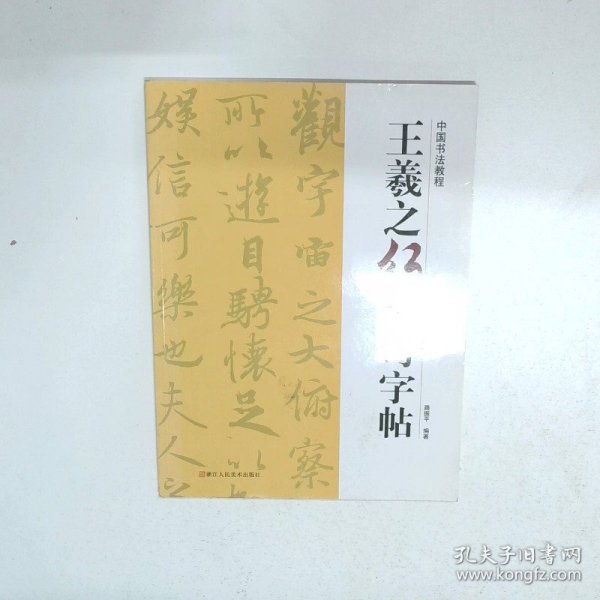 中国书法教程
王羲之
字帖
路振平 编著
觀宇宙之大俯察
所以遊目騁懷足以
娛信可樂也夫人之
浙江人民美术出版社
孔夫子旧书网
www.kongfz.com